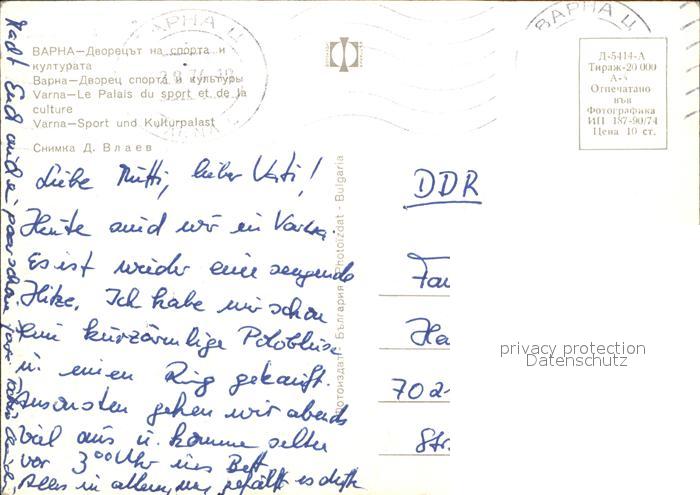 ВАРНА
ВАРНА—Дворецът на спорта и
културата
Варна—Дворец спорта и культуры
Varna—Le Palais du sport et de la
culture
Varna—Sport und Kulturpalast
Снимка Д. Влаев
Liebe Mutti, lieber Vati!
Heute sind wir in Varna.
Es ist wieder eine sengende
Hitze. Ich habe mir schon
eine kurzärmlige Polobluse
u. einen Ring gekauft.
Ansonsten gehen wir abends
viel aus u. kommen selten
vor 3⁰⁰ Uhr ins Bett.
Alles in allem, gefällt es
Фотоиздат - България Photoizdat - Bulgaria
ВАРНА Ц
Д-5414-А
Тираж-20 000
Отпечатано
във
Фотографика
ИП 187-90/74
Цена 10 ст.
DDR
Fam
He
702
Str.
privacy protection
Datenschutz